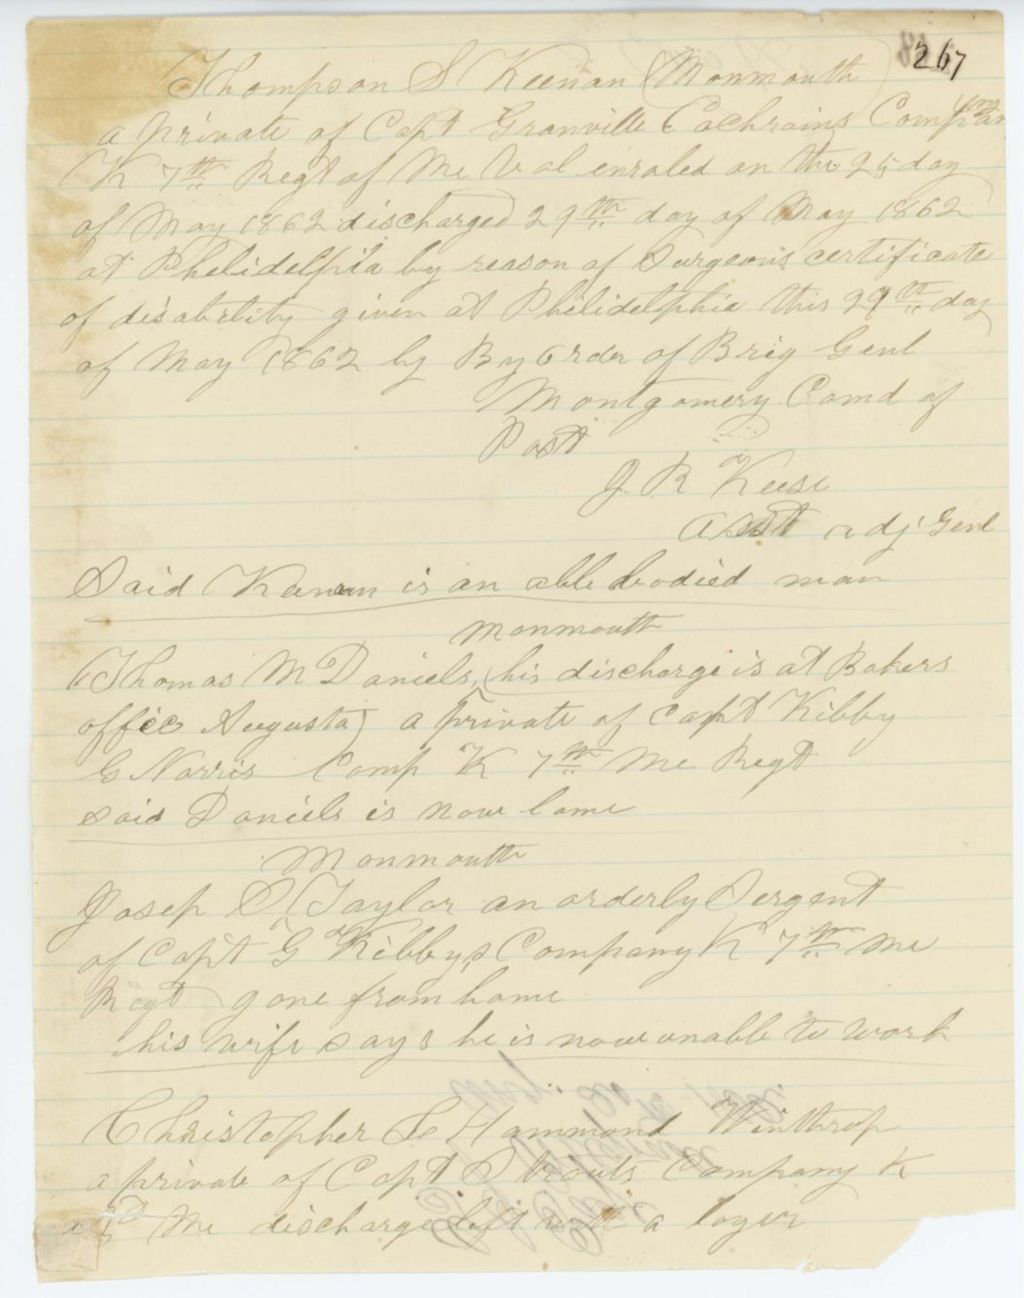 267
Thompson S Keenan (Monmouth)
a private of Capt Granville Cochrains Company
K 7th Regt of Me Vol enroled on the 25 day
of May 1862 discharged 29th day of May 1862
at Phelidelpia by reason of Surgeons certificate
of disability given at Philidelphia this 29th day
of May 1862 by By Order of Brig Genl
Montgomery Comd of
Post
J R Keese
Asst adj Genl
Said Keenan is an able bodied man
Monmouth
Thomas M Daniels, (his discharge is at Bakers
office Augusta) a private of Capt Kibby
G Norris Comp K 7th Me Regt
said Daniels is now lame
Monmouth
Josep S Taylor an orderly Sergent
of Capt G Kibbys Company K 7th Me
Regt gone from home
his wife says he is now unable to work
Christopher S Hammond Winthrop
a private of Capt Strouts Company K
Me discharge left with a loyer